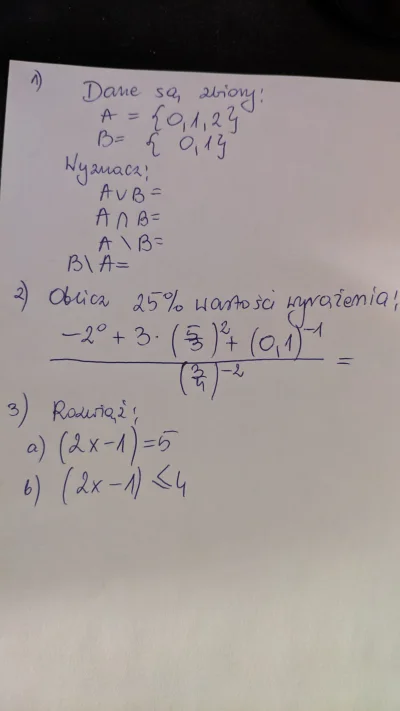 1)
Dane są zbiory:
A = {0,1,2}
B= { 0,1}
Wyznacz:
A∪B=
A∩B=
A\B=
B\A=
2) Oblicz 25% wartości wyrażenia:
(-2⁰ + 3·(5/3)² + (0,1)⁻¹) / (3/4)⁻² =
3) Rozwiąż:
a) (2x-1)=5
b) (2x-1) ≤4